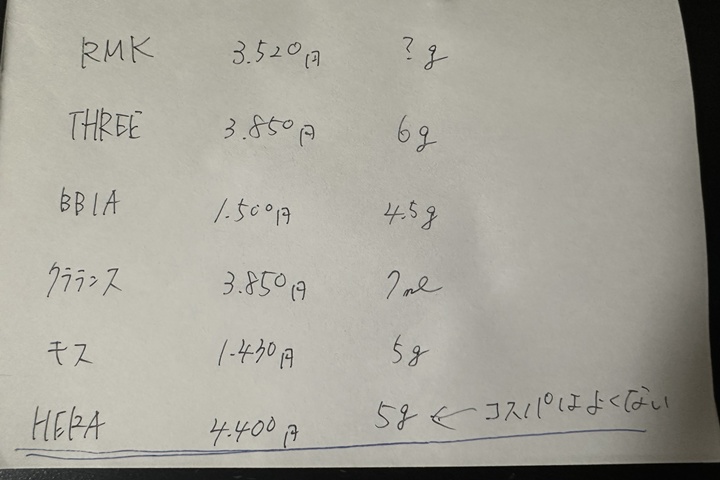 RMK 3.520円 ?g
THREE 3.850円 6g
BBIA 1.500円 4.5g
クラランス 3.850円 7ml
モス 1.430円 5g
HERA 4.400円 5g ← コスパはよくない